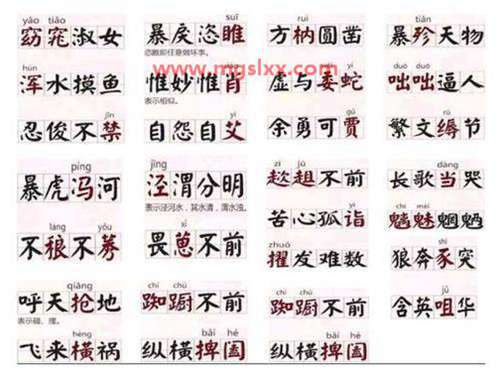 yáo tiǎo
窈窕淑女
suī
暴戾恣睢
恣睢即任意做坏事。
ruì
方枘圆凿
tiǎn
暴殄天物
www.mgslxx.com
hún
浑水摸鱼
惟妙惟肖
表示相似。
yí
虚与委蛇
duō duō
咄咄逼人
jīn
忍俊不禁
yì
自怨自艾
余勇可贾
rù
繁文缛节
píng
暴虎冯河
jīng
泾渭分明
表示泾河水，其水清，渭水浊。
zī jū
趑趄不前
dàng
长歌当哭
yì
苦心孤诣
魑魅魍魉
láng yǒu
不稂不莠
xǐ
畏葸不前
zhuó
擢发难数
狼奔豕突
qiāng
呼天抢地
表示碰，撞。
chí chú
踟蹰不前
chí chú
踟蹰不前
含英咀华
hèng
飞来横祸
bǎi hé
纵横捭阖
bǎi hé
纵横捭阖